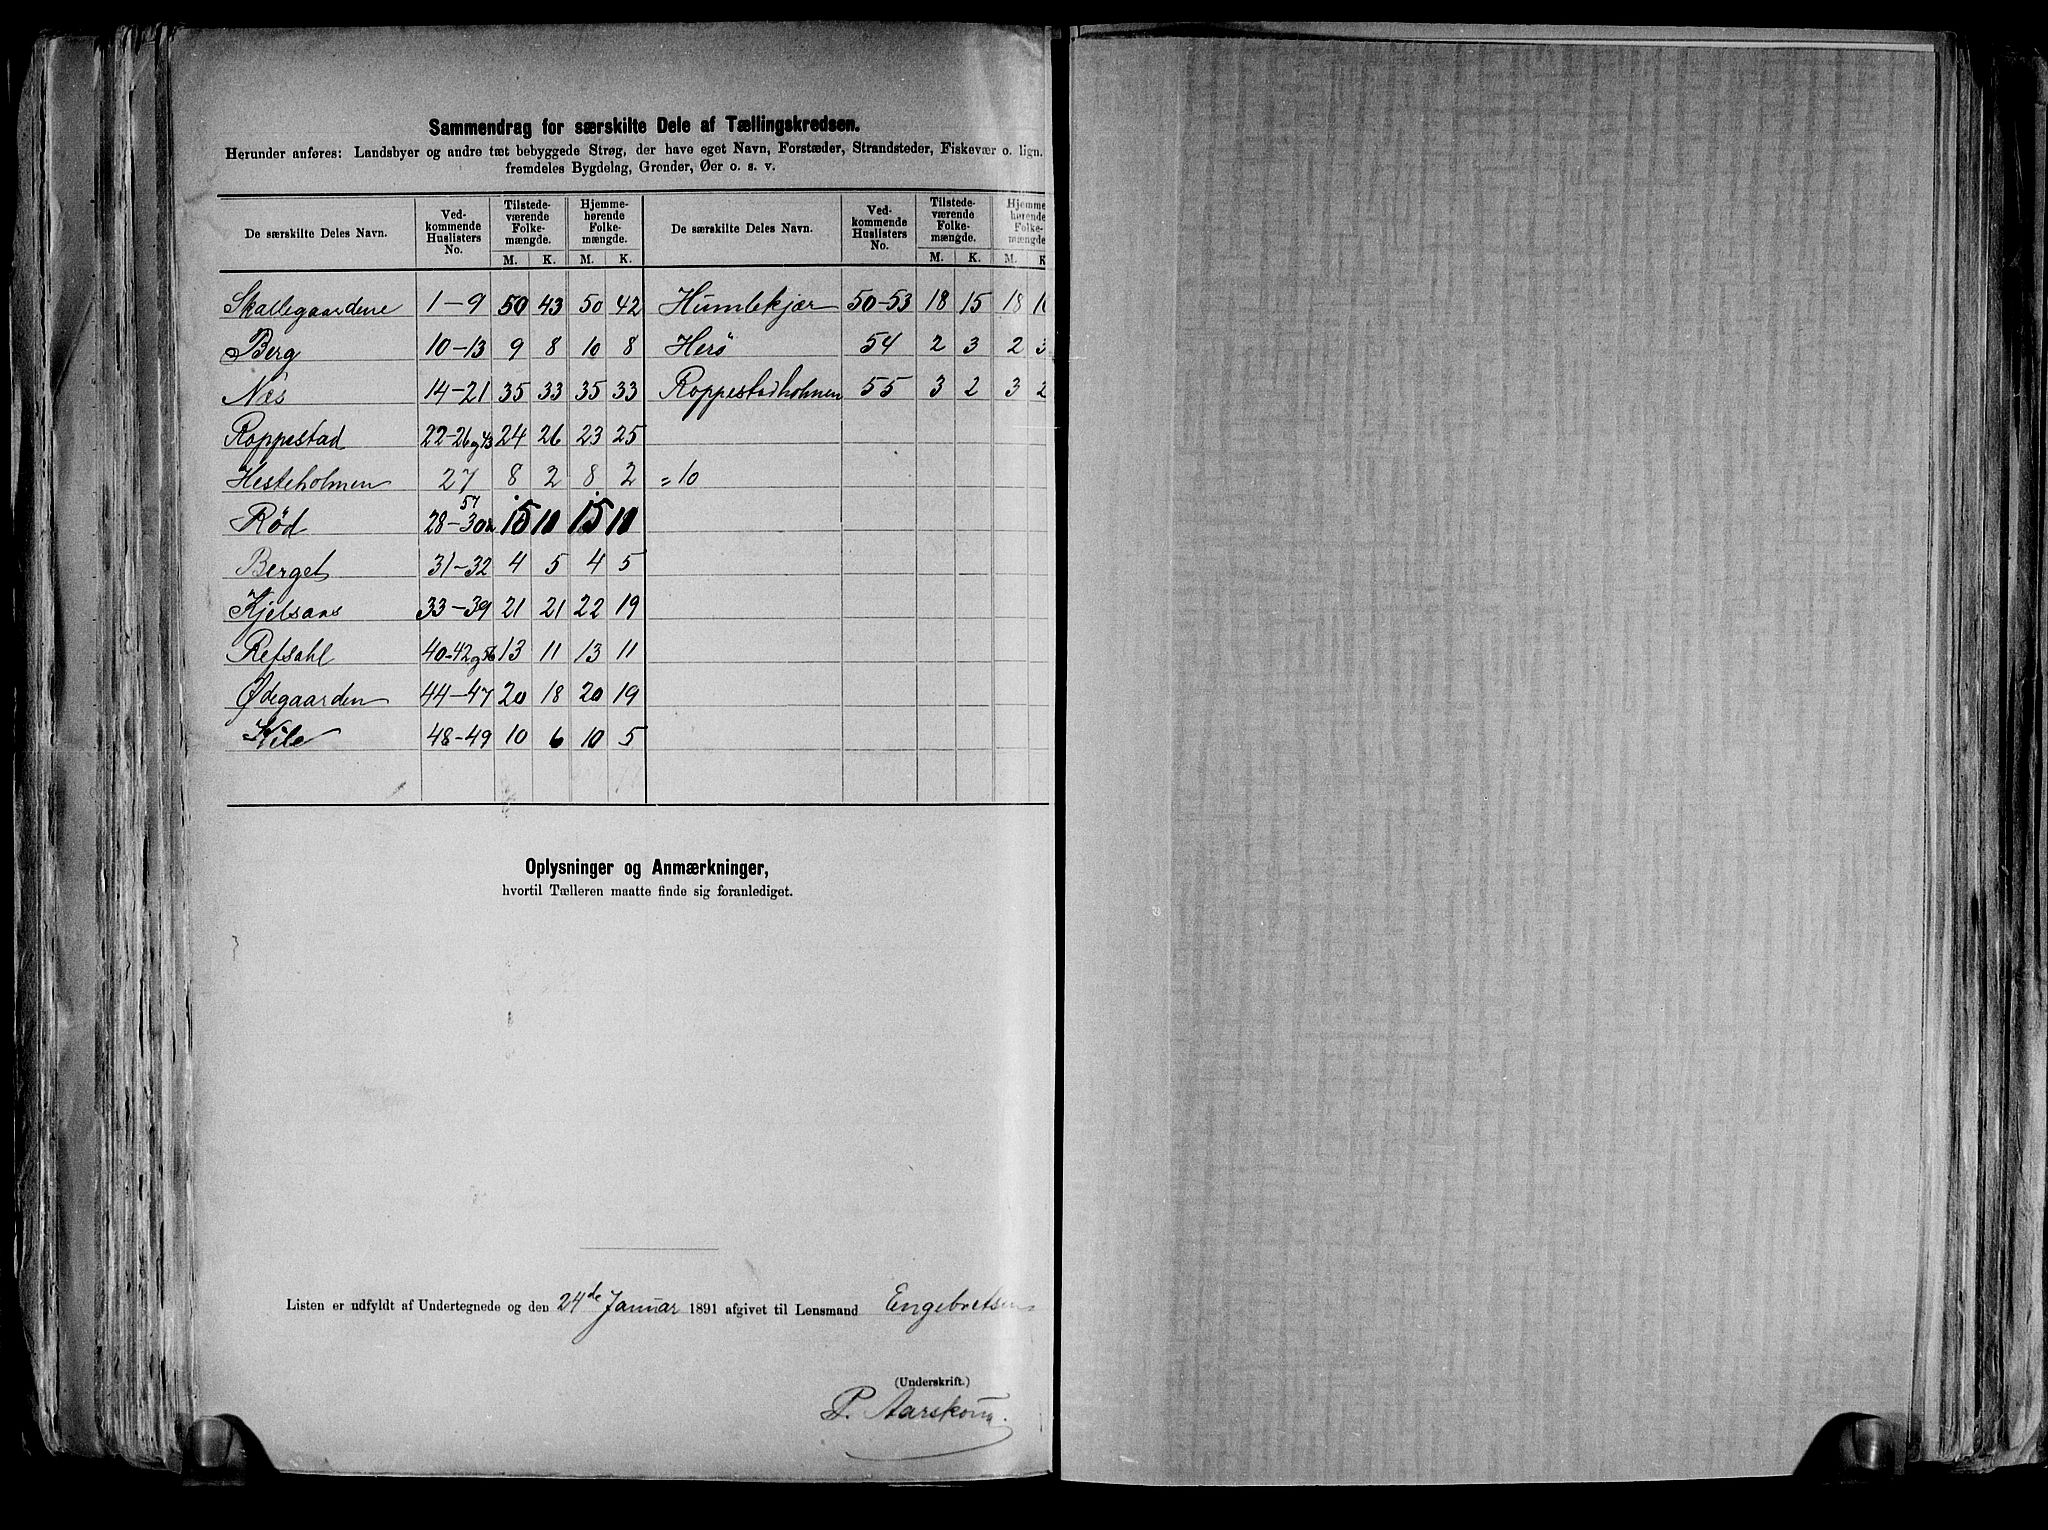 Sammendrag for særskilte Dele af Tællingskredsen.
Herunder anføres: Landsbyer og andre tæt bebyggede Strøg, der have eget Navn, Forstæder, Strandsteder, Fiskevær o. lign.
fremdeles Bygdelag, Grender, Øer o. s. v.
De særskilte Deles Navn. Ved-kommende Huslisters No. Tilstede-værende Folke-mængde. Hjemme-hørende Folke-mængde. De særskilte Deles Navn. Ved-kommende Huslisters No. Tilstede-værende Folke-mængde. Hjemme-hørende Folke-mængde.
M. K. M. K. M. K. M. K
Skallegaardene 1-9 50 43 50 42 Humlekjær 50-53 18 15 18
Berg 10-13 9 8 10 8 Herö 54 2 3 2 3
Næs 14-21 35 33 35 33 Roppestadholmen 55 3 2 3 2
Roppestad 22-26 og 43 24 26 23 25
Hesteholmen 27 8 2 8 2 =10
57
Rød 28-30 15 10 15 10
Berget 31-32 4 5 4 5
Kjelsaas 33-39 21 21 22 19
Refsahl 40-42 og 56 13 11 13 11
Ødegaarden 44-47 20 18 20 19
Kile 48-49 10 6 10 5
Oplysninger og Anmærkninger,
hvortil Tælleren maatte finde sig foranlediget.
Listen er udfyldt af Undertegnede og den 24de Januar 1891 afgivet til Lensmand Engebretsen
(Underskrift.)
P. Aarskoug.